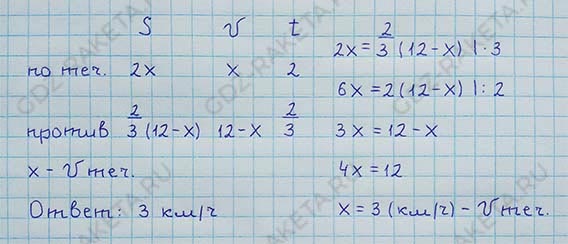 S V t
по теч. 2x x 2
против 2/3 (12-x) 12-x 2/3
x - V теч.
Ответ: 3 км/ч
2x = 2/3 (12-x) | · 3
6x = 2(12-x) | : 2
3x = 12 - x
4x = 12
x = 3 (км/ч) - V теч.
GDZ-RAKETA.RU